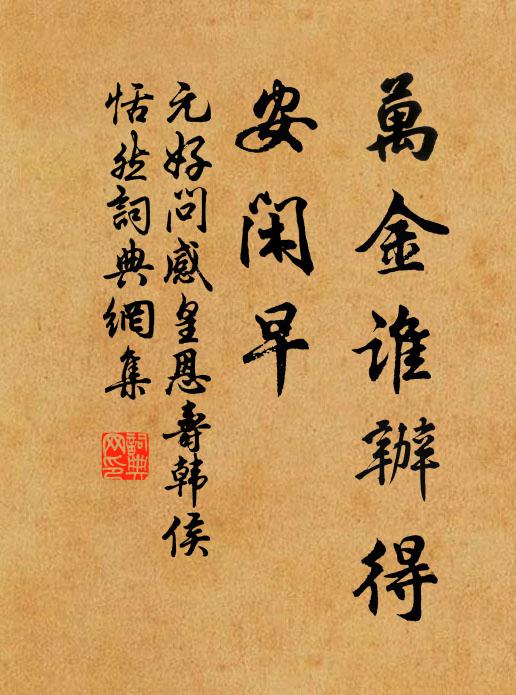 萬金誰辦得
安閑早
元好问感皇恩壽韩侯
恬然詞典網集
詞典
网印